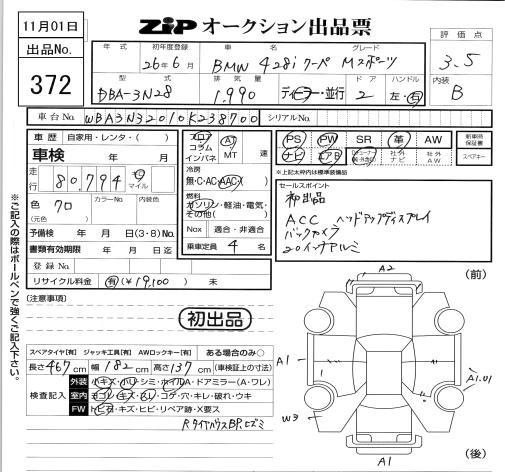 11月01日
出品No.
372
ZIP オークション出品票
年式 初年度登録 車名 グレード 評価点
26年6月 BMW 428i クーペ Mスポーツ 3.5
型式 排気量 ドア ハンドル 内装
DBA-3N28 1,990 ディーラー・並行 2 左・右 B
車台No. WBA3N32010K238700 シリアルNo.
車歴 自家用・レンタ・( )
車検 年 月
走行 80,794 キロ マイル
色 クロ カラーNo. 内装色
(元色)
予備検 年 月 日(3・8)No.
書類有効期限 年 月 日迄
登録No.
リサイクル料金 有(¥19,100) 未
フロア AT
コラム MT 速
インパネ
冷房
無・C・AC・AAC( )
燃料
ガソリン・軽油・電気・
その他( )
Nox 適合・非適合
乗車定員 4 名
PS PW SR 革 AW
ナビ エアB 社外ナビ 社外AW
新車時保証書
スペアキー
※上記太枠内は標準装備品
セールスポイント
初出品
ACC ヘッドアップディスプレイ
バックカメラ
20インチアルミ
(注意事項)
初出品
スペアタイヤ[有] ジャッキ工具[有] AWロックキー[有] ある場合のみ○
長さ 467cm 幅 182cm 高さ 137cm (車検証上の寸法)
検査記入
外装 小キズ・小リ・シミ・ホイルA・ドアミラー(A・ワレ)
室内 ヨゴレ・キズ・スレ・コゲ・穴・キレ・破れ・ウキ
FW トビ石・キズ・ヒビ・リペア跡・X要ス
RタイヤハウスBP、ヒズミ
※ご記入の際はボールペンで強くご記入下さい。
A2 (前)
A1
A1.U1
W3
A1 (後)